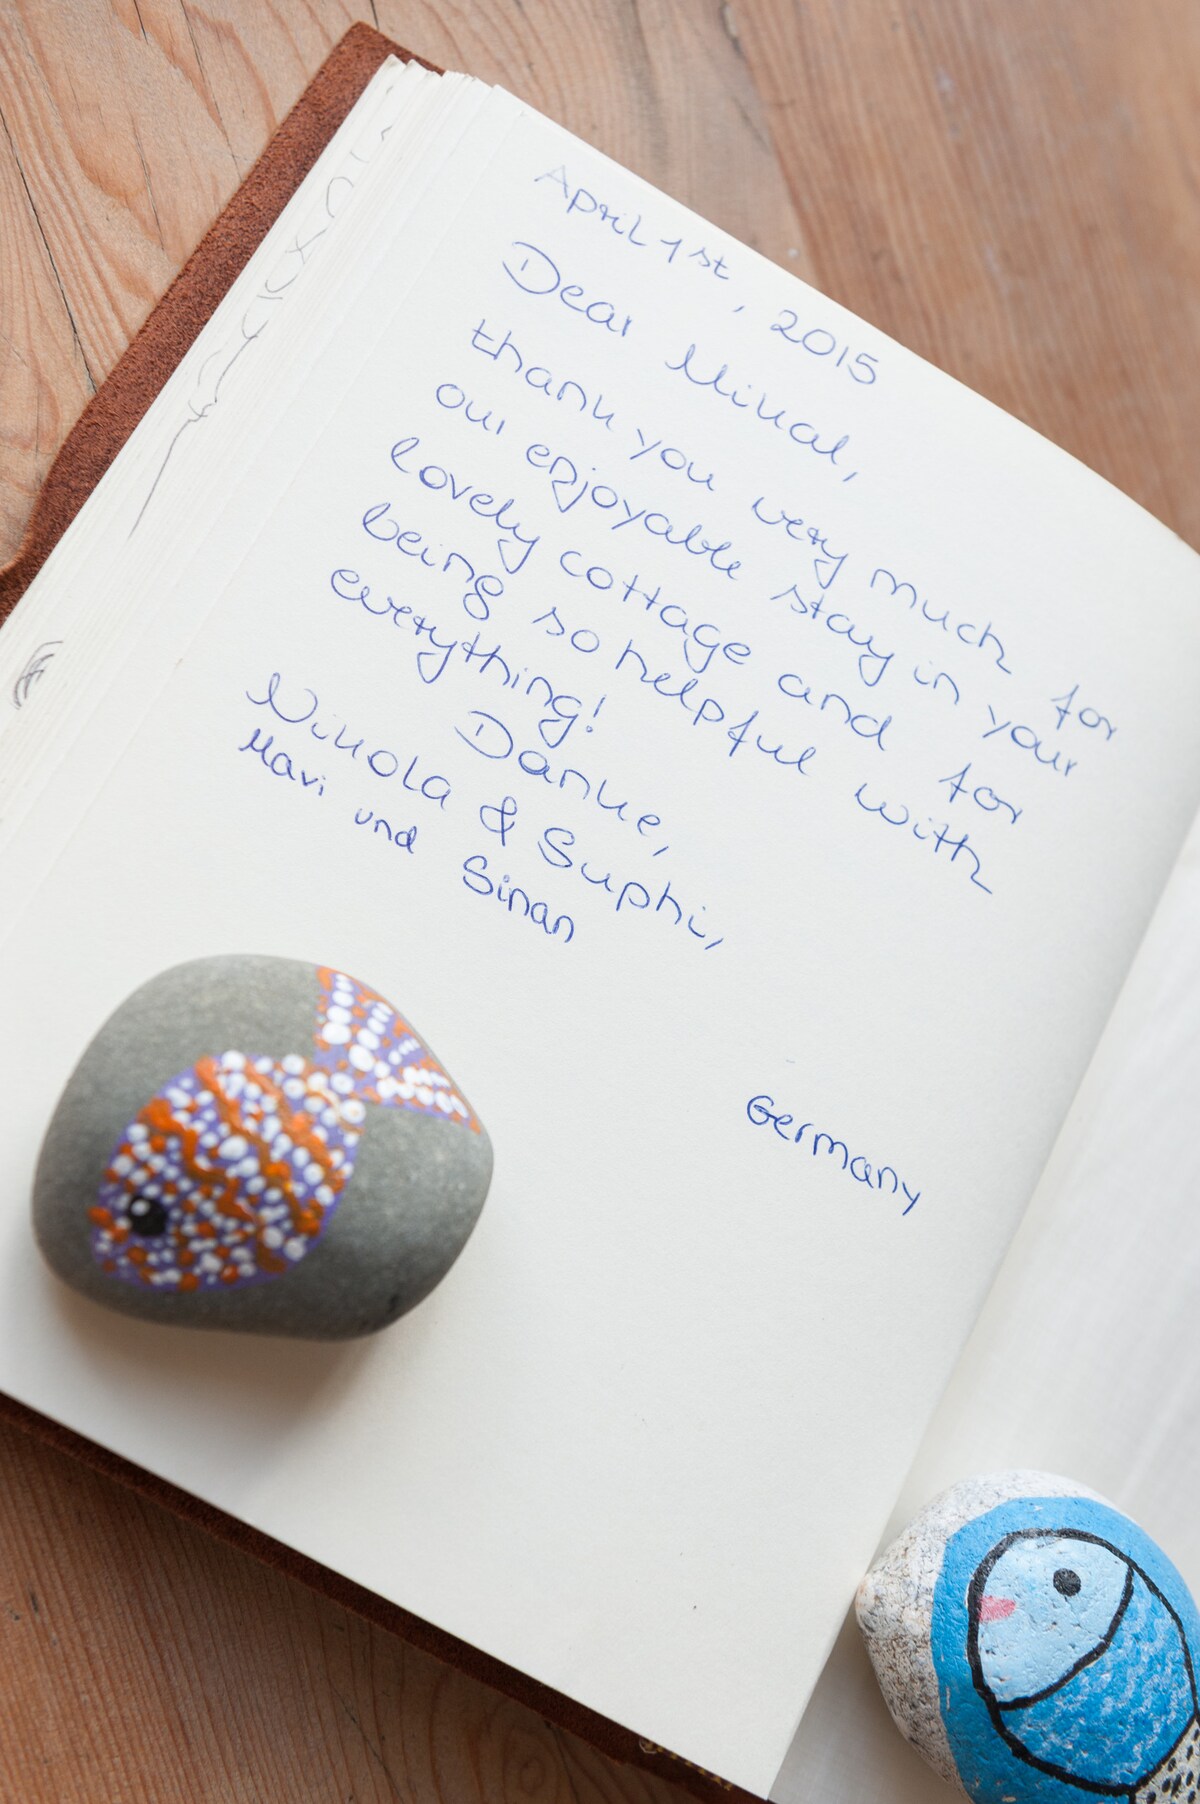 April 1st, 2015
Dear Mikal,
thank you very much for
our enjoyable stay in your
lovely cottage and for
being so helpful with
everything!
Danke,
Nikola & Suphi,
Mavi und Sinan
Germany